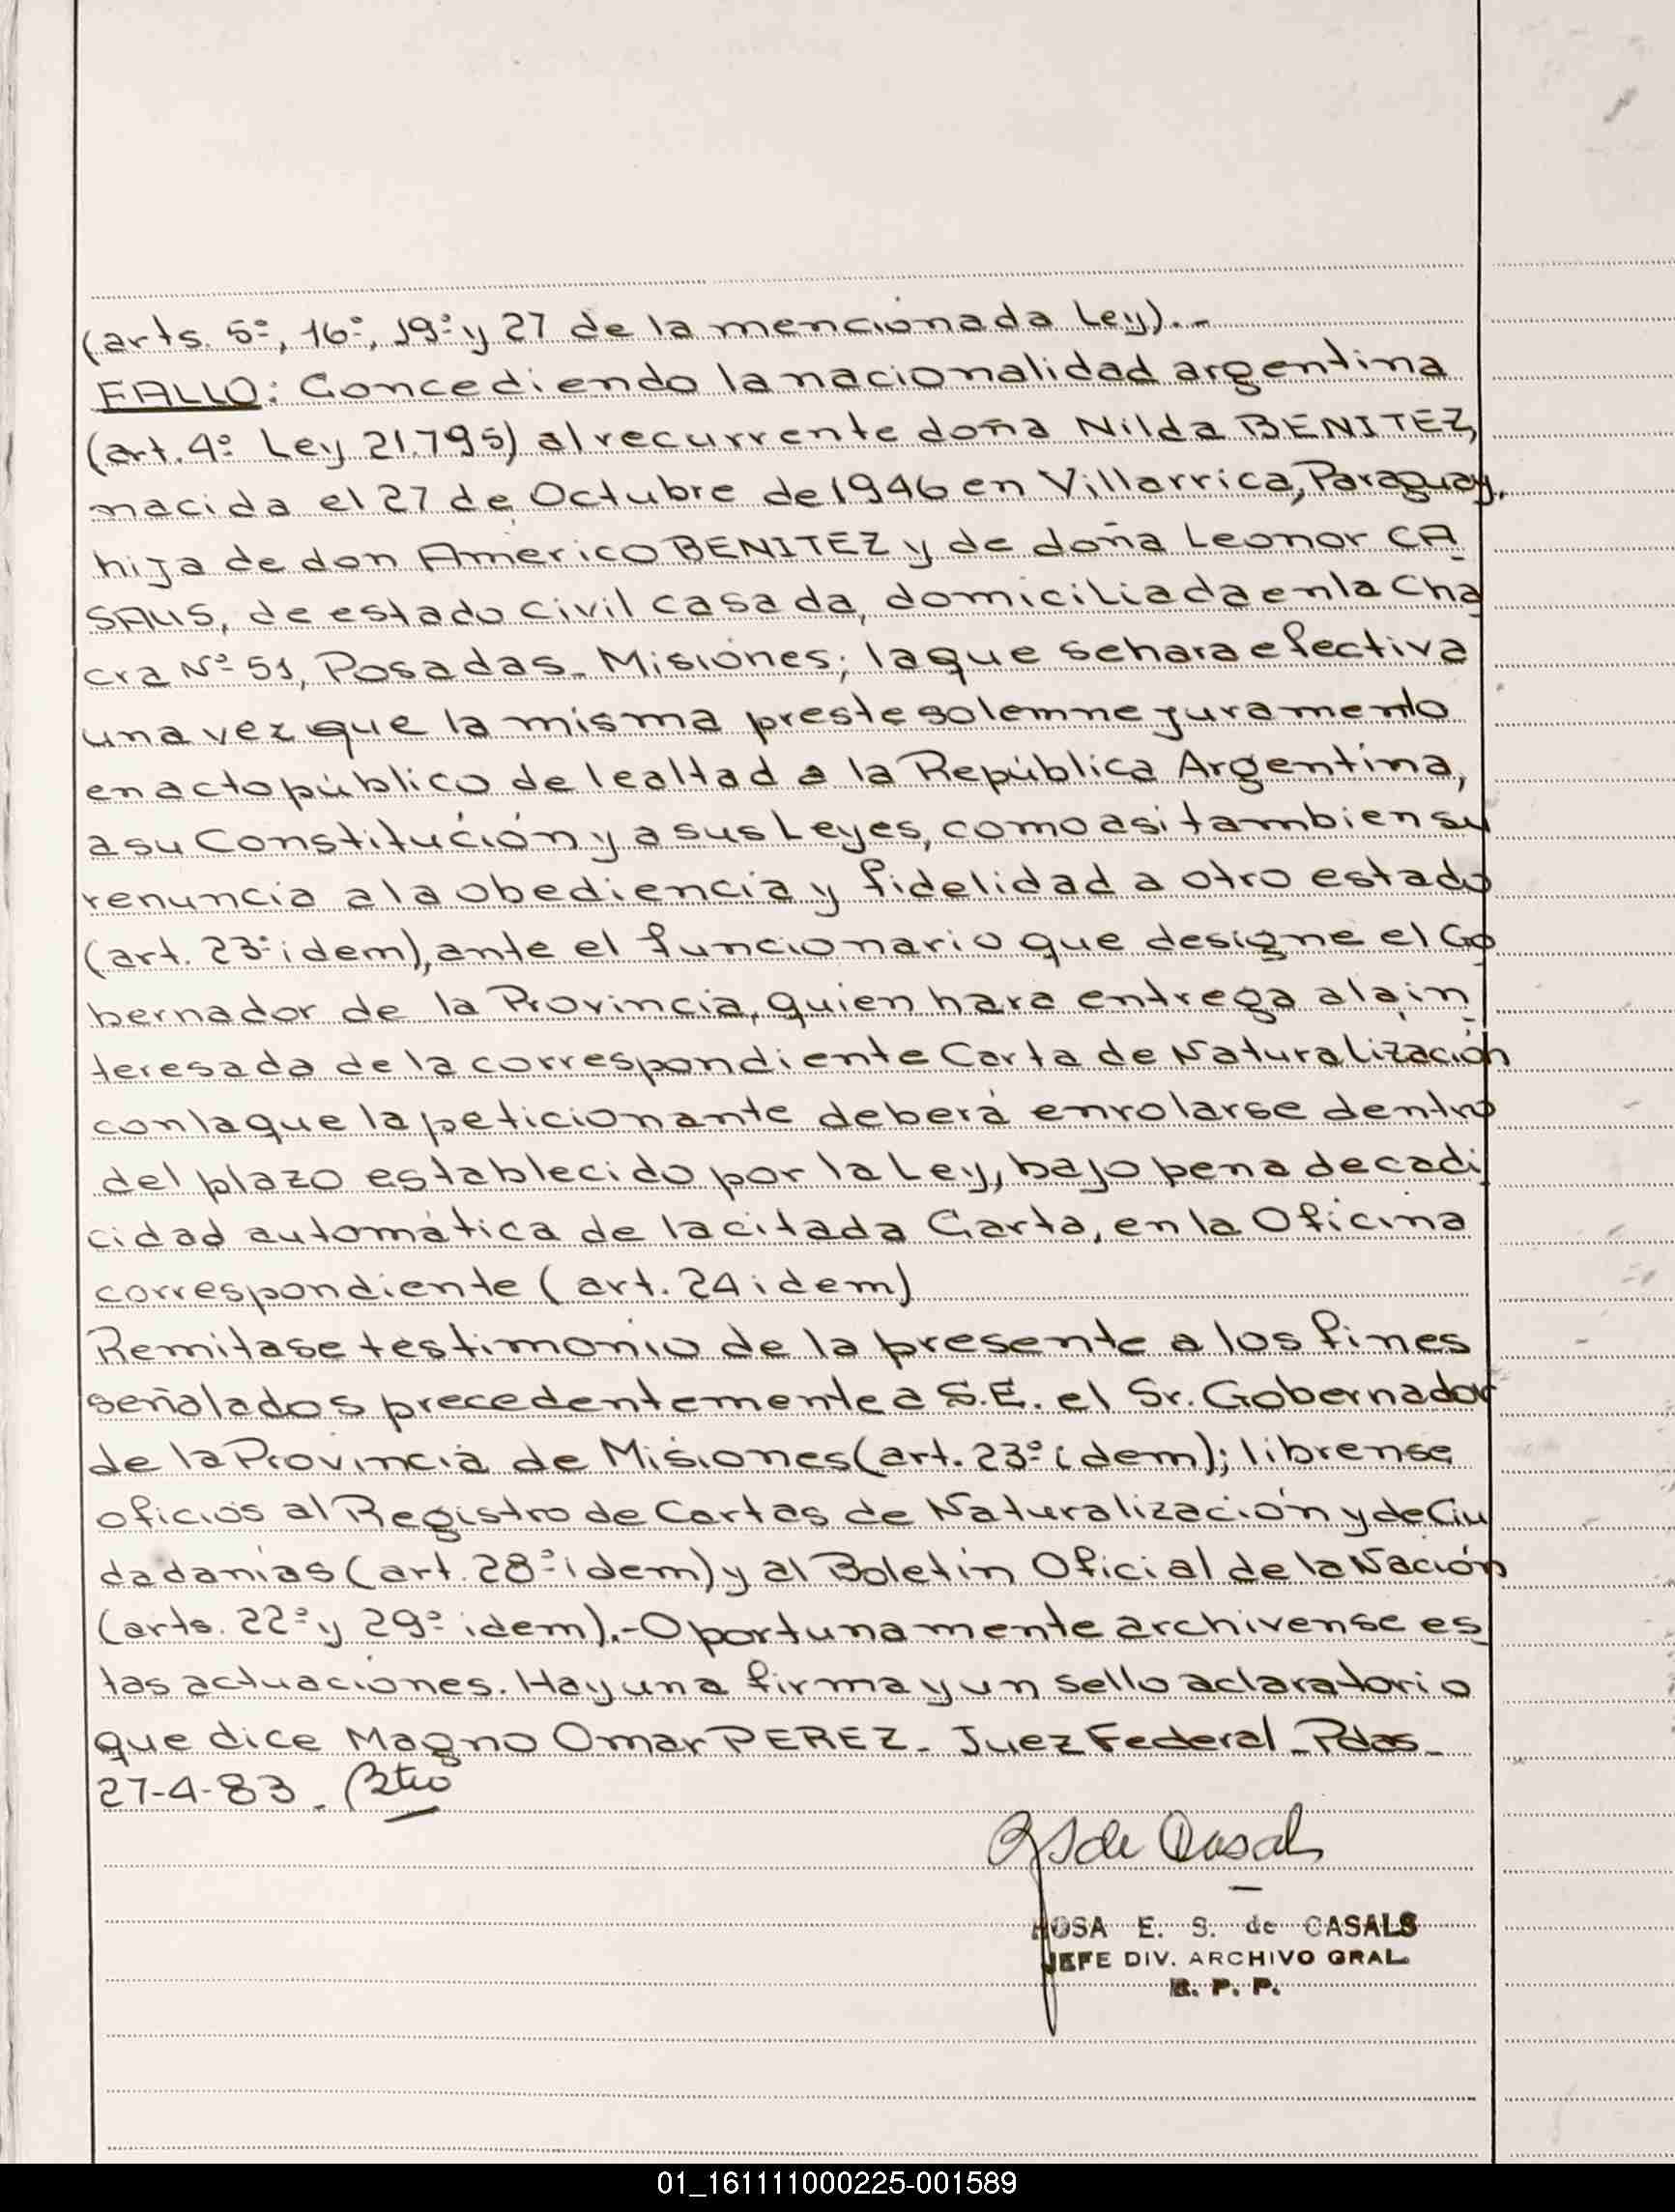 (arts. 5º, 16º, 19º y 27 de la mencionada Ley).-
FALLO: Concediendo la nacionalidad argentina
(art. 4º Ley 21.795) al recurrente doña Nilda BENITEZ,
nacida el 27 de Octubre de 1946 en Villarrica, Paraguay,
hija de don Americo BENITEZ y de doña Leonor CA
SAUS, de estado civil casada, domiciliada en la Cha
cra Nº 51, Posadas - Misiones; la que se hara efectiva
una vez que la misma preste solemne juramento
en acto público de lealtad a la República Argentina,
a su Constitución y a sus Leyes, como asi tambien su
renuncia a la obediencia y fidelidad a otro estado
(art. 23º idem), ante el funcionario que designe el Go
bernador de la Provincia, quien hara entrega a la in
teresada de la correspondiente Carta de Naturalización
con la que la peticionante deberá enrolarse dentro
del plazo establecido por la Ley, bajo pena de cadi
cidad automática de la citada Carta, en la Oficina
correspondiente (art. 24 idem)
Remitase testimonio de la presente a los fines
señalados precedentemente a S.E. el Sr. Gobernador
de la Provincia de Misiones (art. 23º idem); librense
oficios al Registro de Cartas de Naturalización y de Ciu
dadanias (art. 28º idem) y al Boletin Oficial de la Nación
(arts. 22º y 29º idem).- Oportunamente archivense es
tas actuaciones. Hay una firma y un sello aclaratorio
que dice Magno Omar PEREZ - Juez Federal - Pdas -
27-4-83.
ROSA E. S. de CASALS
JEFE DIV. ARCHIVO GRAL.
R. P. P.
01_161111000225-001589